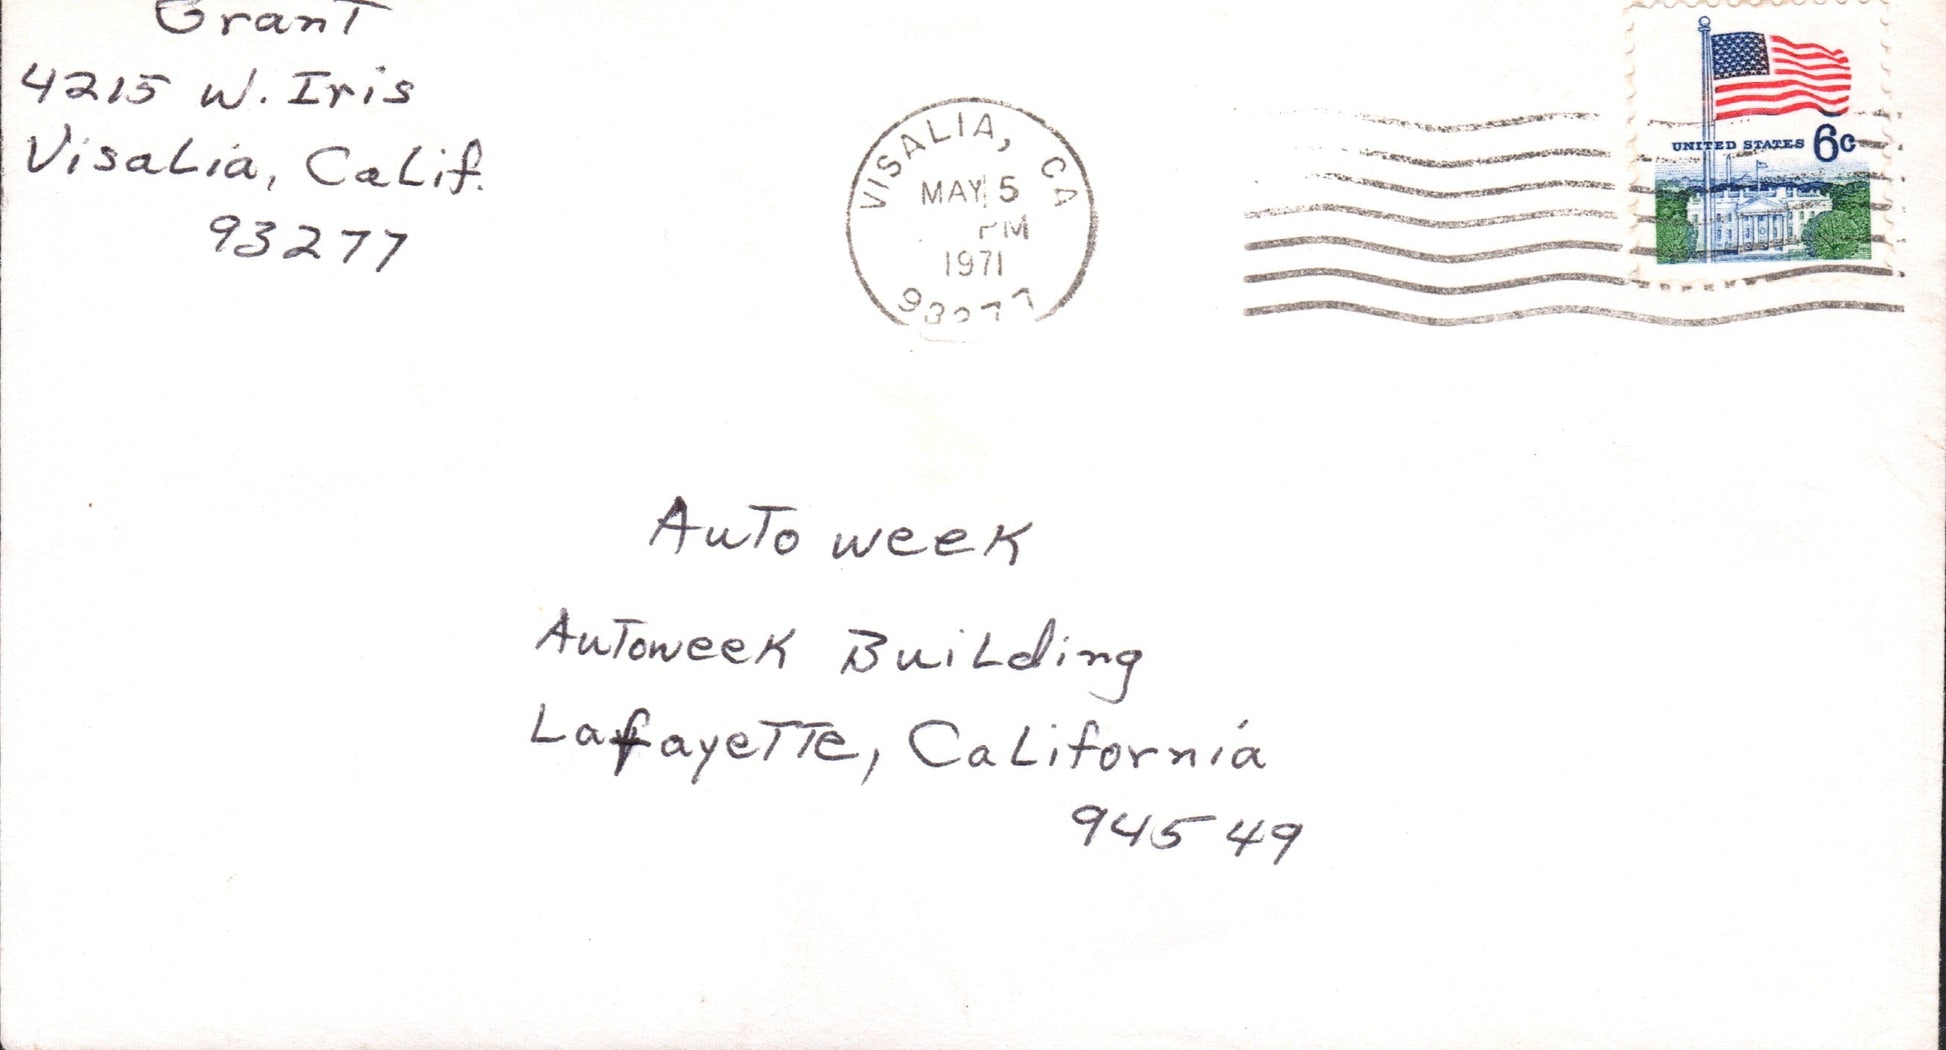 Grant
4215 W. Iris
Visalia, Calif.
93277
VISALIA, CA
MAY 5
PM
1971
93277
UNITED STATES 6c
Autoweek
Autoweek Building
Lafayette, California
94549